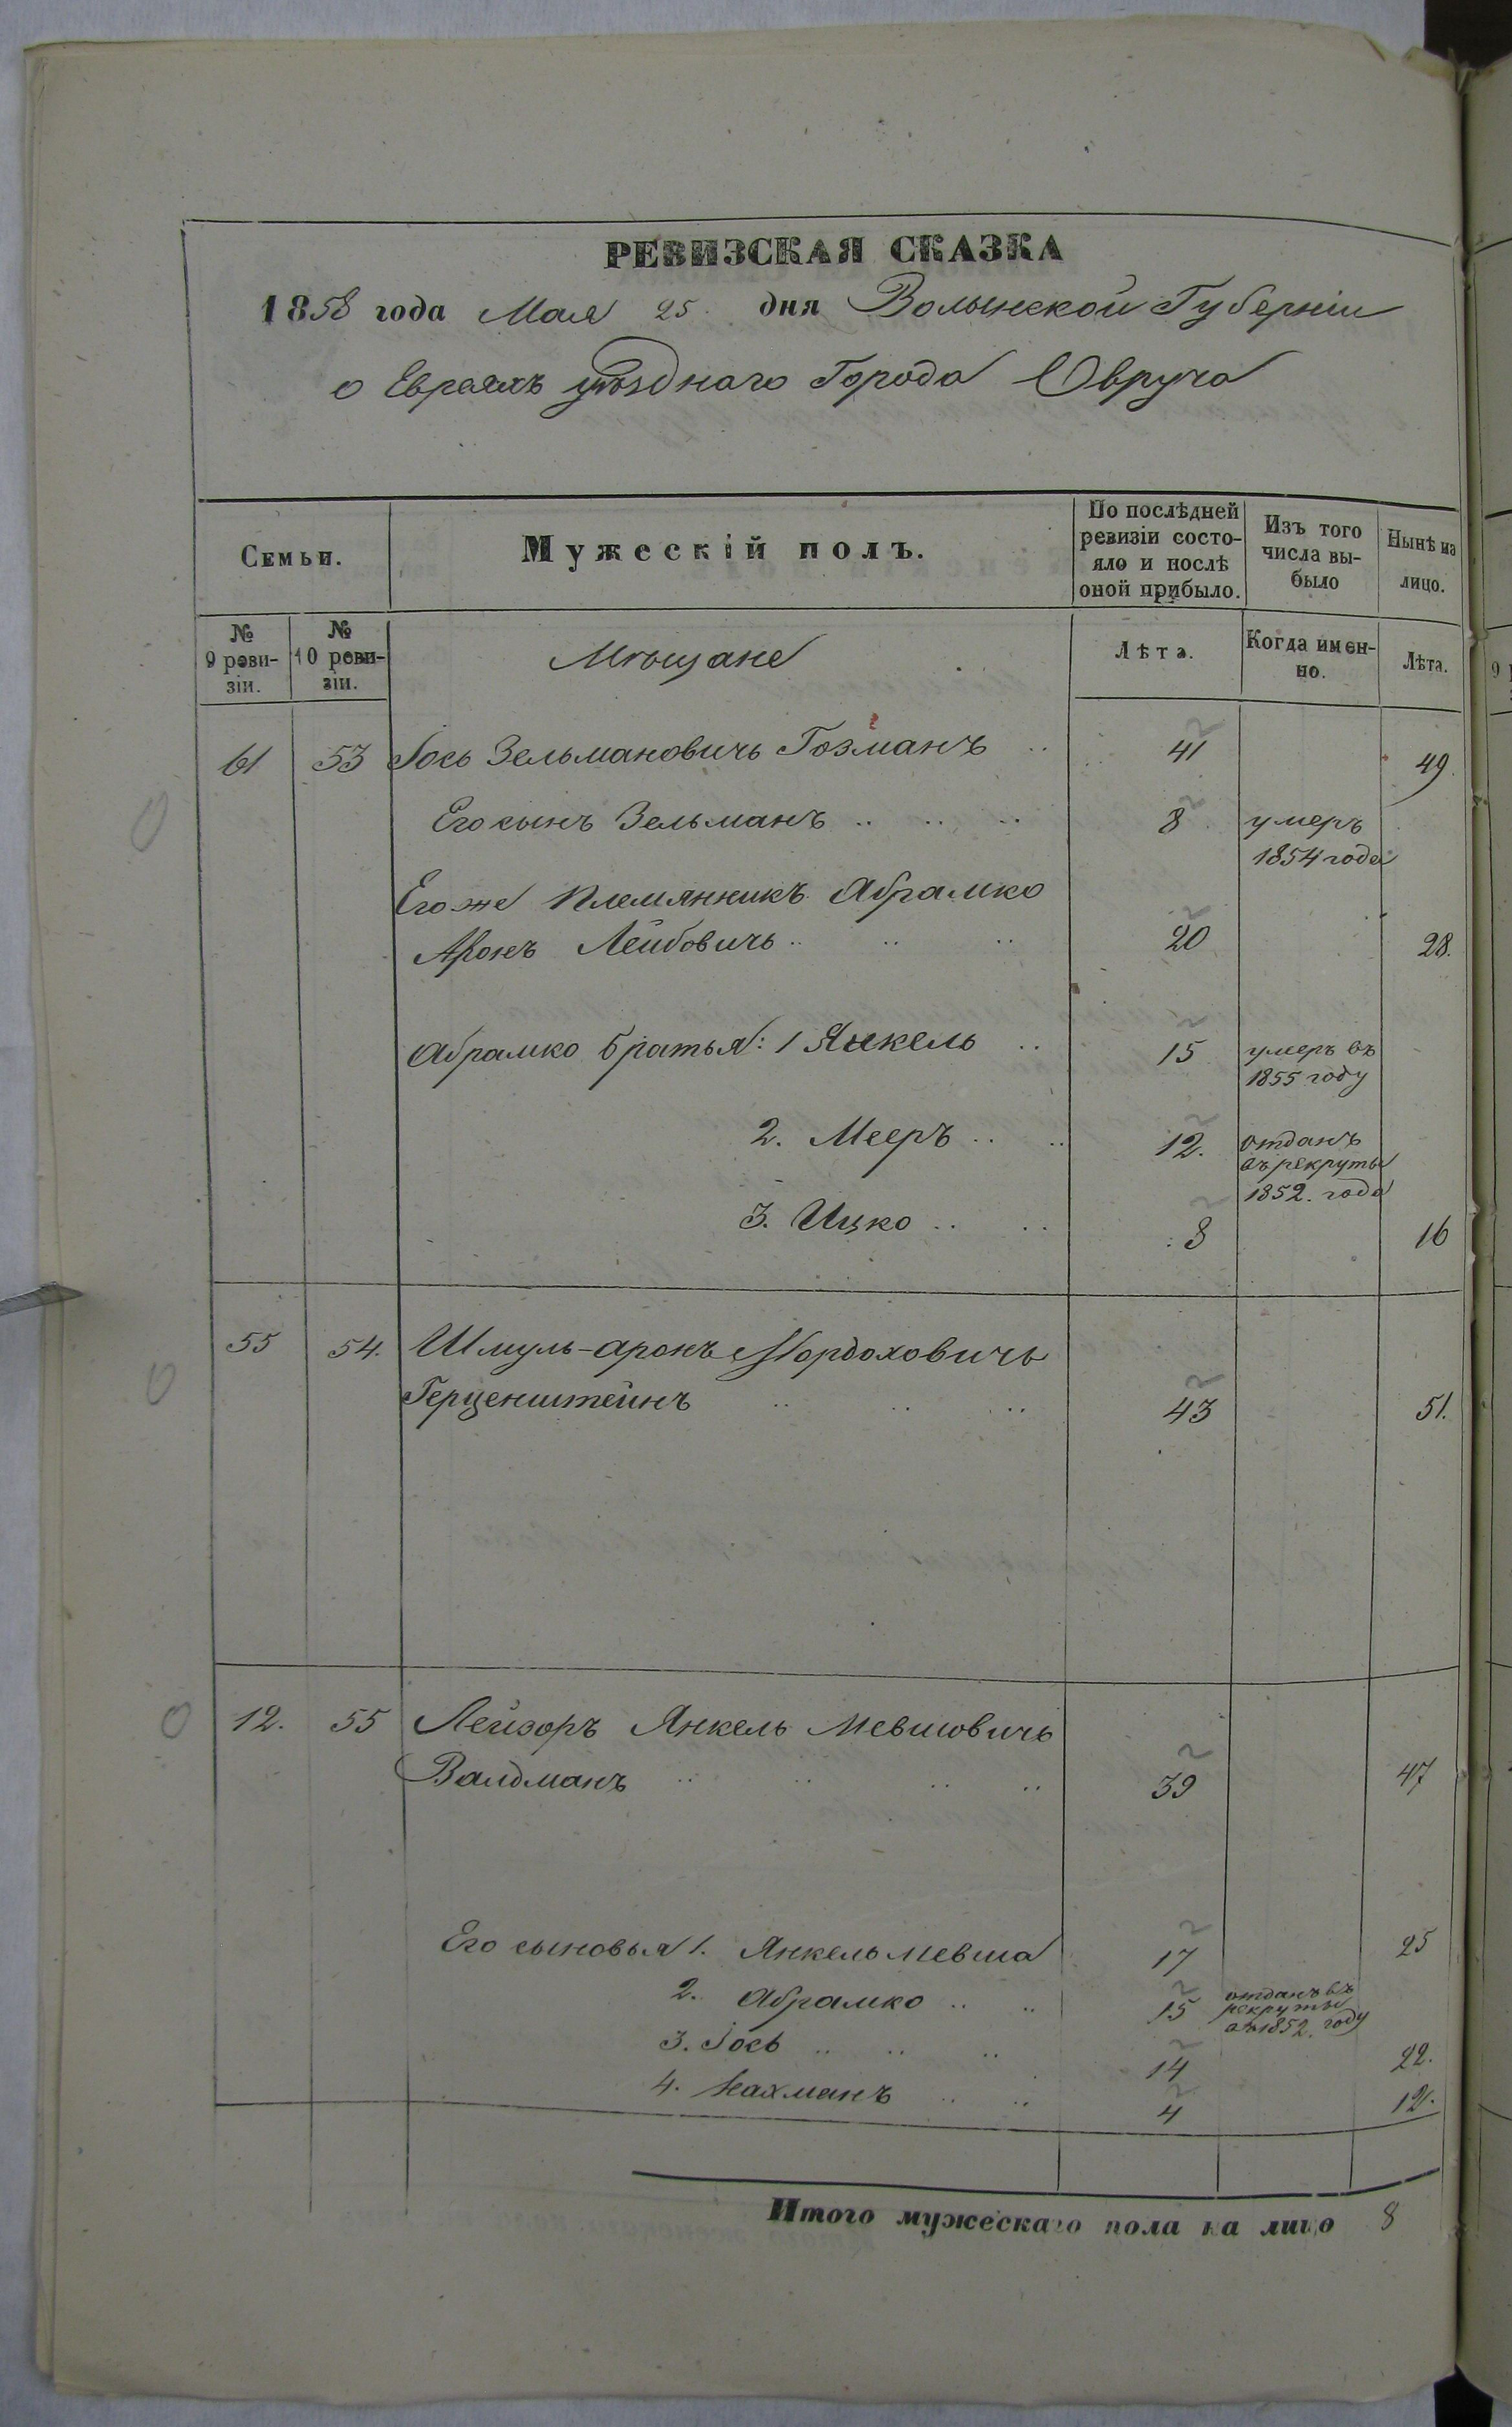 РЕВИЗСКАЯ СКАЗКА
1858 года Мая 25 дня Волынской Губерніи
о Евреяхъ уѣзднаго Города Овруча
Семьи.
Мужескій полъ.
По послѣдней
ревизіи состо-
яло и послѣ
оной прибыло.
Изъ того
числа вы-
было
Нынѣ на
лицо.
№
9 реви-
зіи.
№
10 реви-
зіи.
Мѣщане
Лѣта.
Когда имен-
но.
Лѣта.
61 53 Іось Зельмановичь Гозманъ .. 41 49.
Его сынъ Зельманъ .. .. .. 8 умеръ
1854 года
Его же племянникъ Абрамко
Аронъ Лейбовичь .. .. .. 20 28.
Абрамко братья: 1 Янкель .. 15 умеръ въ
1855 году
2. Мееръ .. .. 12. отданъ
въ рекруты
1852. года
3. Ицко .. .. 8 16
55 54. Шмуль-аронъ Мордоховичь
Герценштейнъ .. .. .. 43 51.
12. 55 Лейзоръ Янкель Мевшовичь
Валдманъ .. .. .. .. 39 47
Его сыновья 1. Янкель Мевша 17 25
2. Абрамко .. .. 15 отданъ въ
рекруты
въ 1852. году
3. Іось .. .. .. 14 22.
4. Нахманъ .. .. 4 12.
Итого мужескаго пола на лицо 8